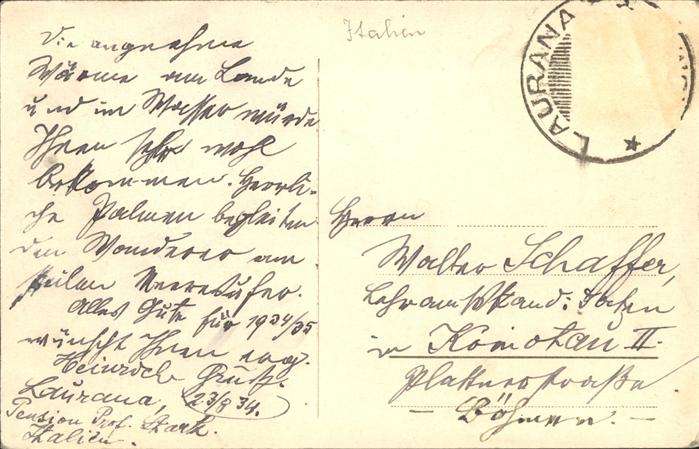 Die angenehme
Wärme am Lande
und im Wasser würde
Ihnen sehr wohl
bekommen. Herrli-
che Palmen begleiten
den Wanderer am
Meeresufer.
Alles Gute für 1934/35
wünscht Ihnen erg.
Heinrich
Laurana, 23/8 34.
Pension Prof. Stark.
Italien.
Italien
LAURANA
Herrn
Walter Schaffer,
Lehramtskand:
in Komotau II.
Plattnerstraße
- Böhmen. -